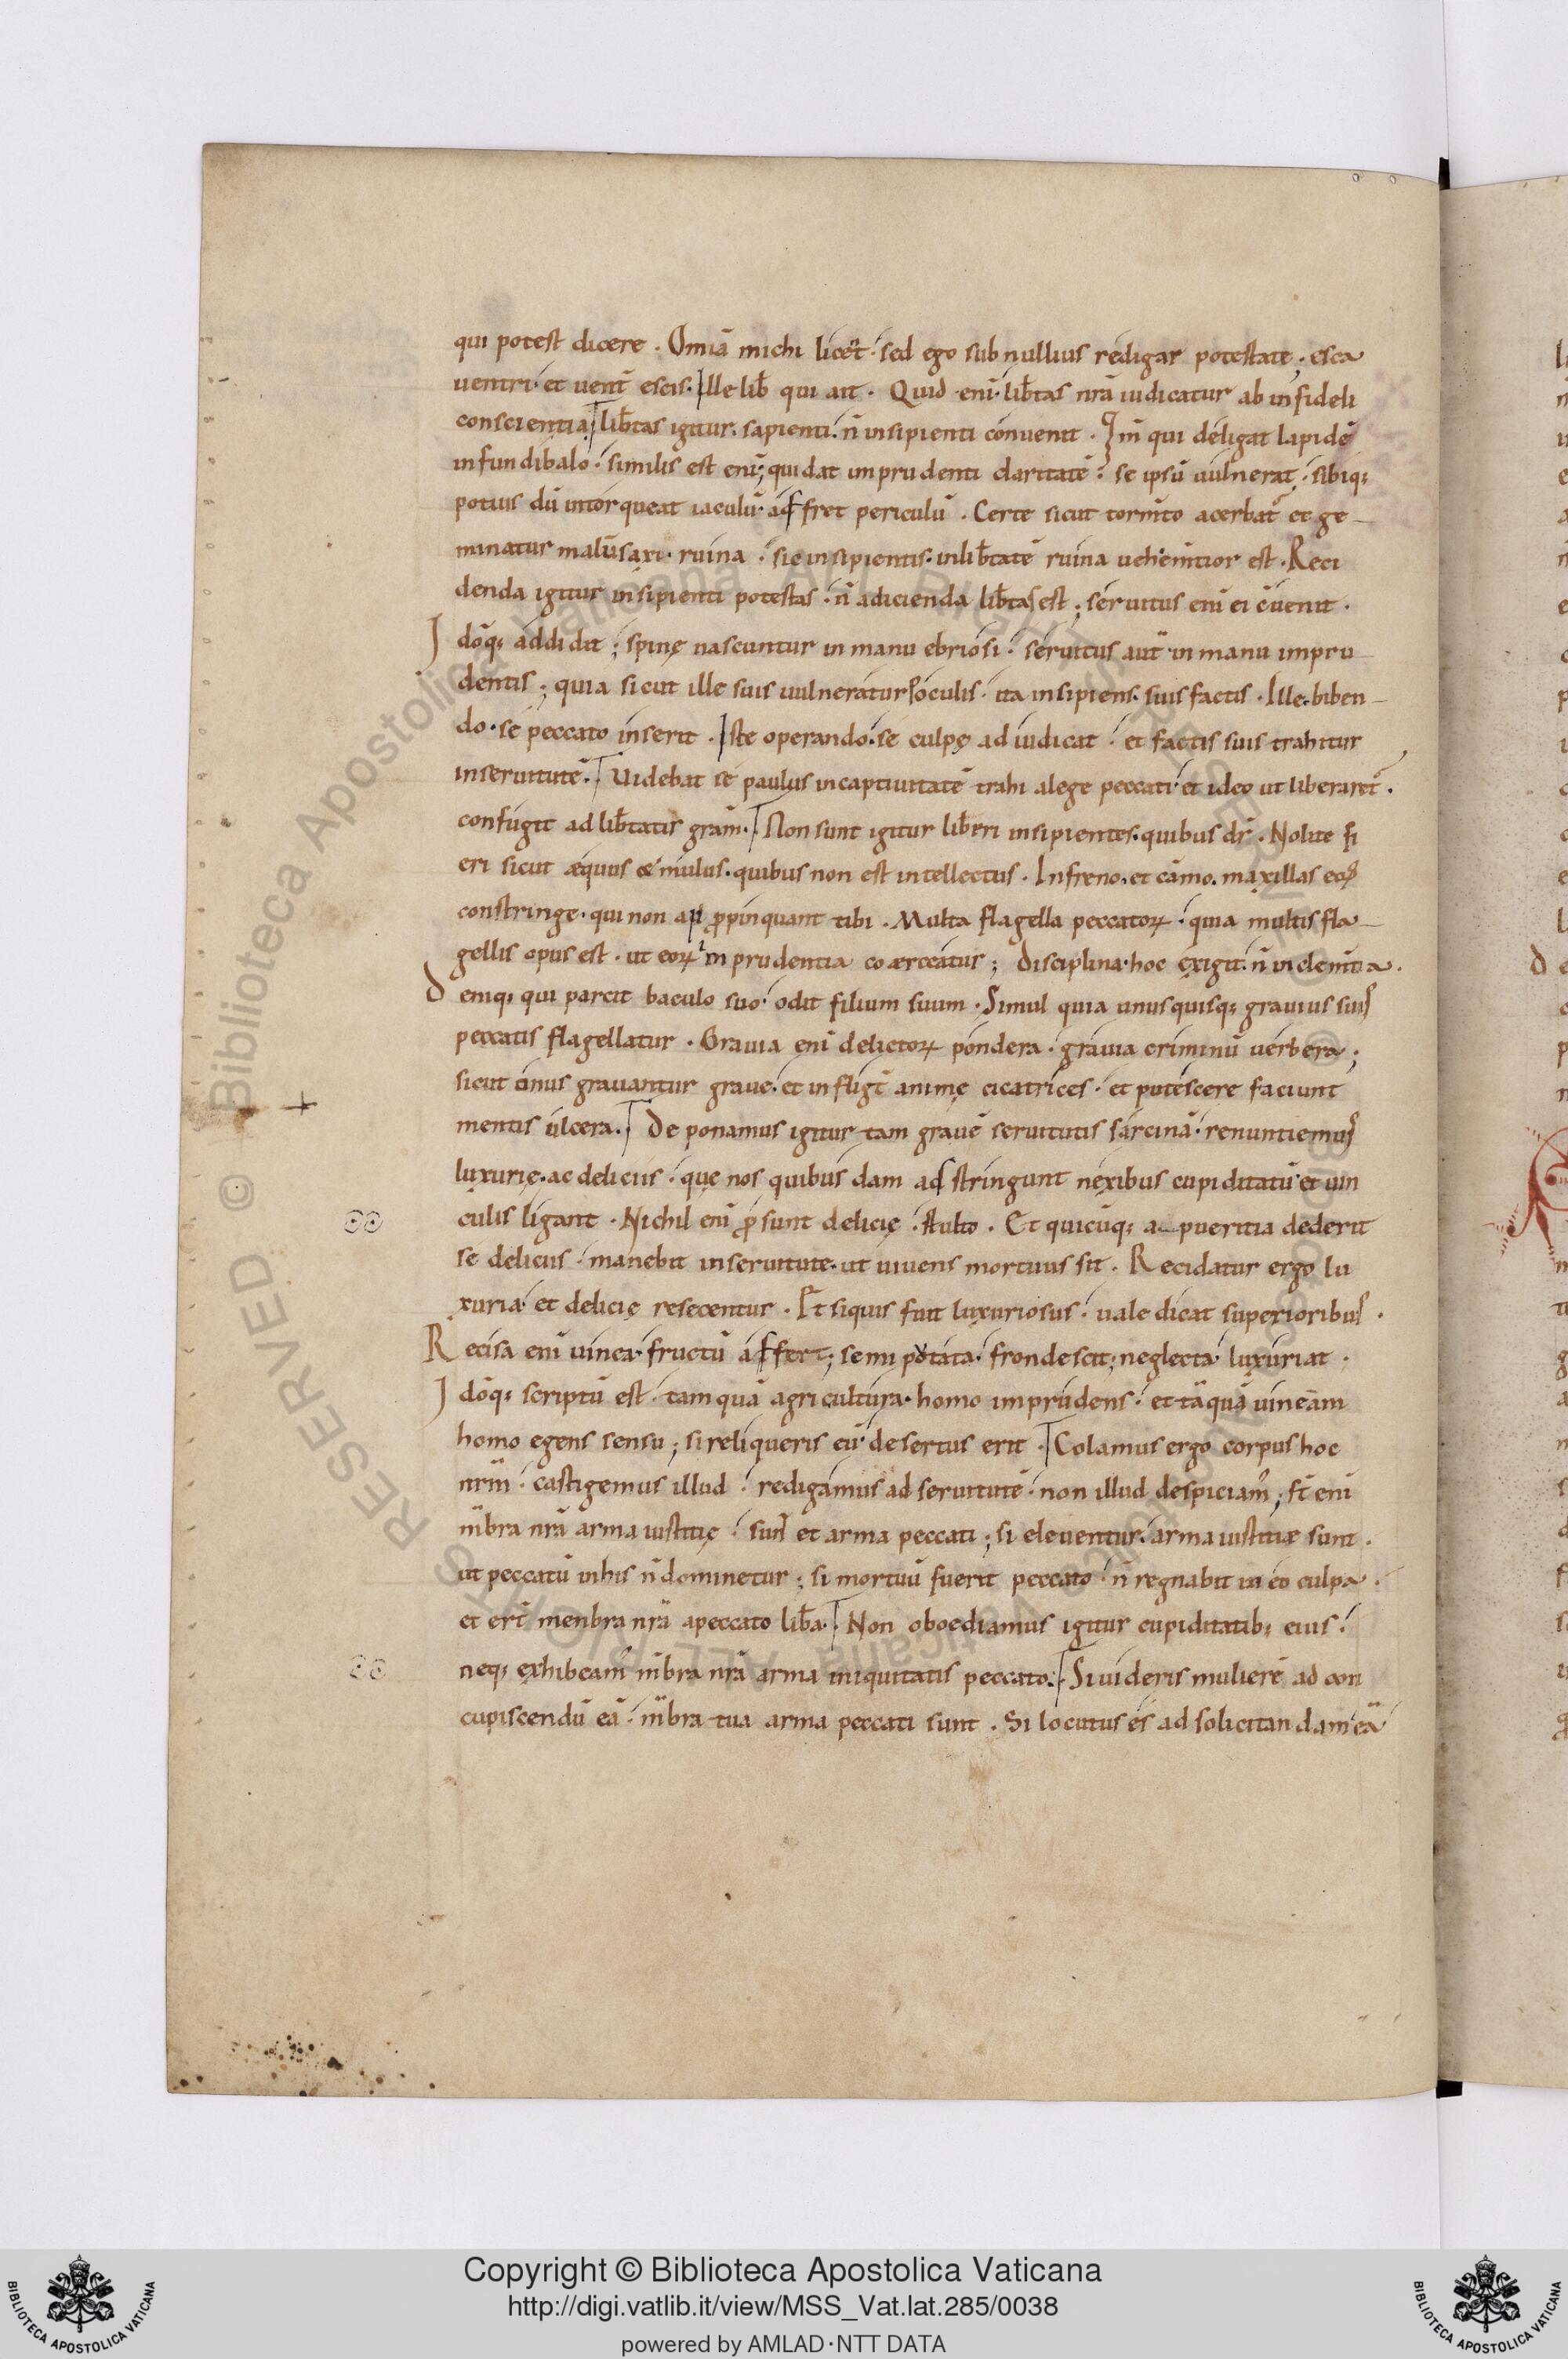 qui potest dicere . Om̄ia michi licet · sed ego sub nullius redigar potestate ; esca
uentri · et uent̄ escis · Ille lib̄ qui ait . Quid enī lib̄tas nr̄a iudicatur ab infideli
conscientia lib̄tas igitur · sapienti · n̄ insipienti conuenit . Nā qui deligat lapidē
in fundibalo · similis est enī ; qui dat imprudenti claritatē · se ipsū uulnerat · sibiq;
potius dū intorqueat iaculū · affret periculū . Certe sicut torm̄to acerbat̄ et ge-
minatur malū saxi · ruina · sic insipientis · in lib̄tatē ruina uehem̄tior est . Reci
denda igitur insipienti potestas · n̄ adicienda lib̄tas est ; seruitus enī ei c̄uenit .
Idōq; addidit ; spinę nascuntur in manu ebriosi · seruitus aut̄ in manu impru-
dentis ; quia sicut ille suis uulneratur poculis · ita insipiens · suis factis . Ille biben-
do · se peccato inserit . Iste operando · se culpę adiudicat · et factis suis trahitur
in seruitutē . Uidebat se paulus in captiuitatē trahi a lege peccati · et ideo ut liberaret̄ .
confugit ad lib̄tatis grām . Non sunt igitur liberi insipientes · quibus dr̄ . Nolite fi
eri sicut æquus & mulus · quibus non est intellectus . In freno · et camo · maxillas eoꝝ
constringe · qui non ap ꝓpinquant tibi . Multa flagella peccatoꝝ · quia multis fla-
gellis opus est · ut eoꝝ inprudentia coærceatur ; disciplina · hoc exigit · n̄ inclem̄tia .
deniq; qui parcit baculo suo · odit filium suum . Simul quia unusquisq; grauius suis
peccatis flagellatur . Grauia enī delictoꝝ pondera · grauia criminū uerbera ;
sicut onus grauantur graue · et infligt̄ animę cicatrices · et putescere faciunt
mentis ulcera . Deponamus igitur tam grauē seruitutis sarcinā · renuntiemus
luxurię · ac deliciis · quę nos quibusdam adstringunt nexibus cupiditatū · et uin
culis ligant . Nichil enī ꝓsunt delicię · stulto . Et quicūq; a pueritia dederit
se deliciis · manebit in seruitute · ut uiuens mortuus sit . Recidatur ergo lu
xuria · et delicię resecentur . Et siquis fuit luxuriosus · uale dicat superioribus .
Recisa enī uinea · fructū affert ; semi potata · frondescit ; neglecta · luxuriat .
Idōq; scriptū est · tamquā agricultura · homo imprudens · et tāquā uineam
homo egens sensu ; si reliqueris eū · desertus erit . Colamus ergo corpus hoc
nrm̄ · castigemus illud · redigamus ad seruitutē · non illud despiciam᷒ ; st̄ enī
m̄bra nr̄a arma iustitię · sunt et arma peccati ; si eleuentur · arma iustitiæ sunt .
ut peccatū in his n̄ dominetur ; si mortuū fuerit peccato · n̄ regnabit in eo culpa .
et ert̄ menbra nr̄a a peccato lib̄a . Non oboediamus igitur cupiditatib; eius ·
neq; exhibeam᷒ m̄bra nr̄a arma iniquitatis peccato . Si uideris mulierē ad con
cupiscendū eā · m̄bra tua arma peccati sunt . Si locutus es ad solicitandam eā
Copyright © Biblioteca Apostolica Vaticana
http://digi.vatlib.it/view/MSS_Vat.lat.285/0038
powered by AMLAD·NTT DATA